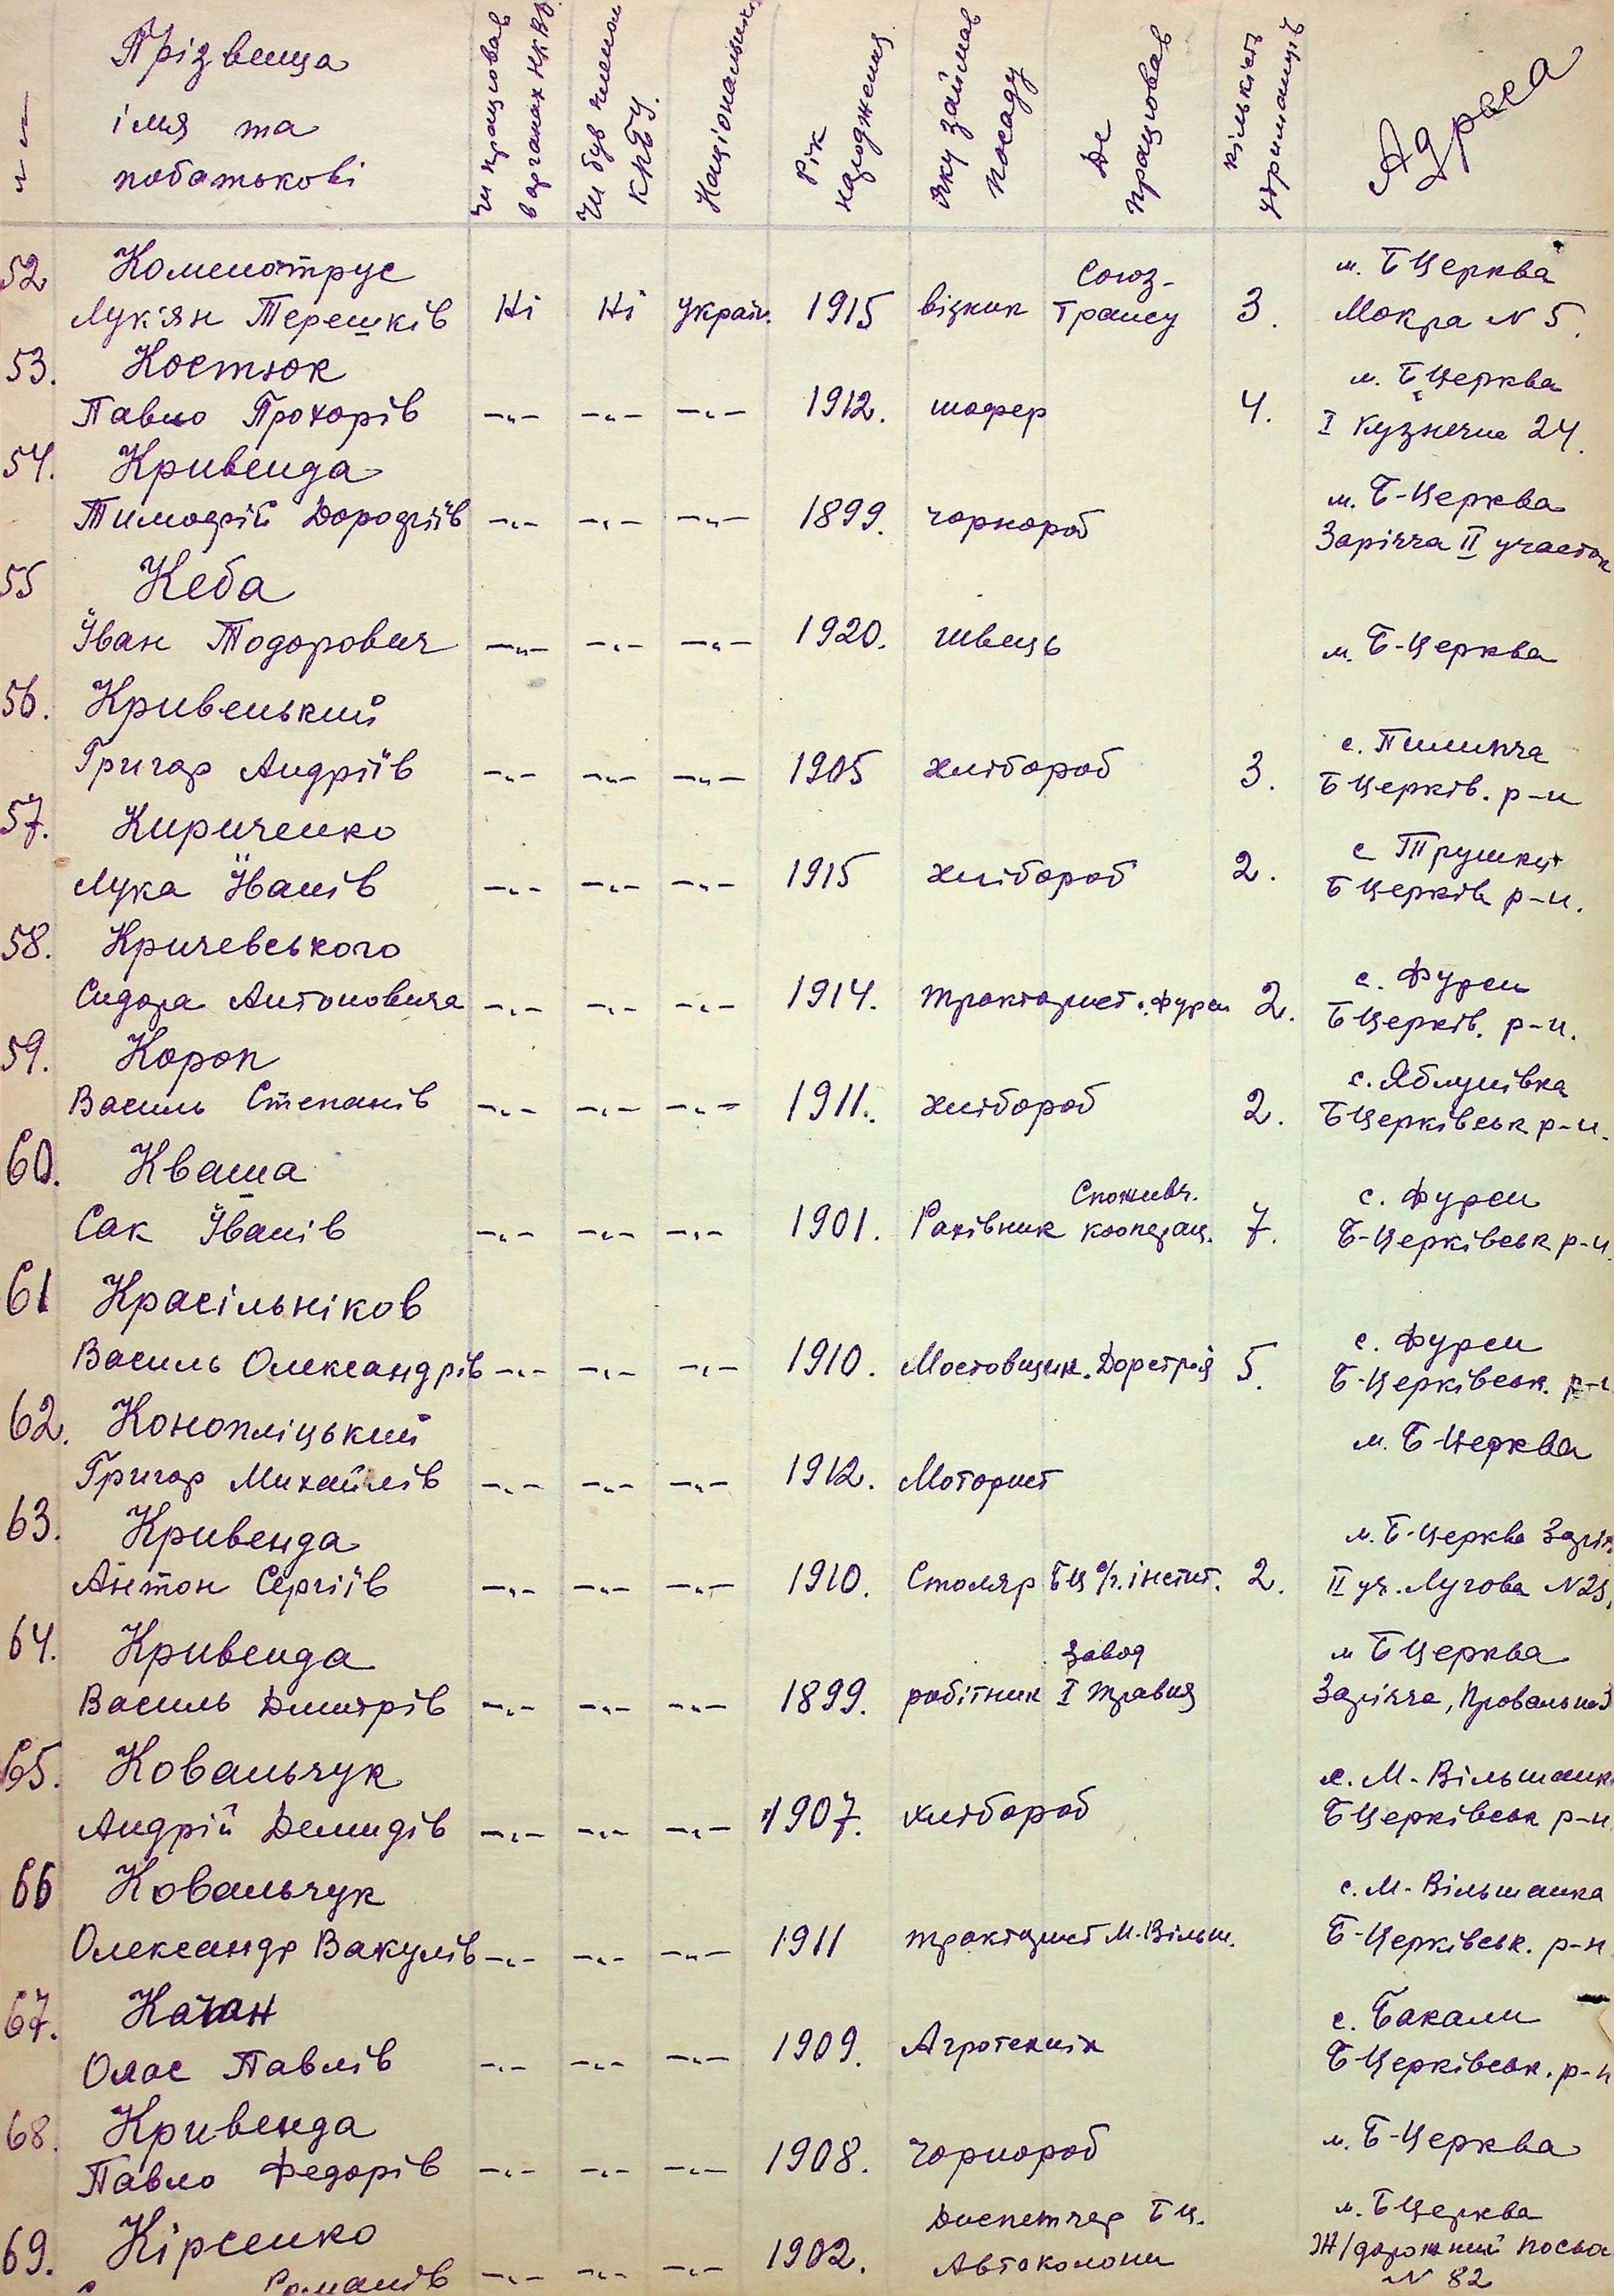 Прізвеща
імя та
побатькові
Чи працював
в органах НКВД.
Чи був членом
КПБУ.
Національність
Рік
народження
яку займав
посаду
Де
працював
кількість
утриманців
Адреса
52 Коменотрус Союз- м. БЦерква
Лук'ян Терешків Ні Ні україн. 1915 візник Трансу 3. Мокра N 5.
53. Костюк м. БЦерква
Павло Прохорів —"— —"— —"— 1912. шофер 4. I Кузнечна 24.
54. Кривенда м. Б-Церква
Тимофій Дорофіїв —"— —"— —"— 1899. чорнороб Заріччя II участок
55 Кеба
Іван Тодорович —"— —"— —"— 1920. швець м. Б-Церква
56. Кривенький с. Пилипча
Григор Андріїв —"— —"— —"— 1905 хлібороб 3. БЦерків. р-н
57. Кириченко с Трушки
Лука Іванів —"— —"— —"— 1915 хлібороб 2. БЦерків р-н.
58. Кричевського с. Фурси
Сидора Антоновича —"— —"— —"— 1914. тракторист. Фурси 2. БЦерків. р-н.
59. Короп с. Яблунівка
Василь Степанів —"— —"— —"— 1911. хлібороб 2. БЦерківськ р-н.
60. Кваша Споживч. с. Фурси
Сак Іванів —"— —"— —"— 1901. Рахівник кооперац. 7. Б-Церківськ р-н.
61 Красільніков с. Фурси
Василь Олександрів —"— —"— —"— 1910. Мостовщик. Дорстрой 5. Б-Церківськ. р-н
62. Конопліцький м. БЦерква
Григор Михайлів —"— —"— —"— 1912. Моторист
63. Кривенда м. Б-Церква Заріч.
Антон Сергіїв —"— —"— —"— 1910. Столяр БЦ с/г. інстит. 2. II уч. Лугова N29.
64. Кривенда завод м БЦерква
Василь Дмитрів —"— —"— —"— 1899. робітник I травня Заріччя, Провальна 3
65. Ковальчук с. М-Вільшанк
Андрій Демидів —"— —"— —"— 1907. хлібороб БЦерківськ р-н
66 Ковальчук с. М-Вільшанка
Олександр Вакулів —"— —"— —"— 1911 тракторист М-Вільш. Б-Церківськ. р-н
67. Качан с. Бакали
Опас Павлів —"— —"— —"— 1909. Агротехнік БЦерківськ. р-н
68. Кривенда м. Б-Церква
Павло Федорів —"— —"— —"— 1908. Чорнороб
69. Кірсенко Диспетчер БЦ. м. БЦерква
Романів —"— —"— —"— 1902. Автоколони Ж/дорожний посьол
N 82